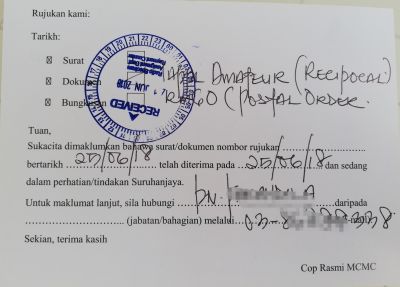 Rujukan kami:
Tarikh:
Surat
Dokumen
Bungkusan
RECEIVED
JUN 2018
AMATEUR (RECIPOCAL)
(POSTAL ORDER.
Tuan,
Sukacita dimaklumkan bahawa surat/dokumen nombor rujukan
bertarikh 25/06/18 telah diterima pada 25/06/18 dan sedang
dalam perhatian/tindakan Suruhanjaya.
Untuk maklumat lanjut, sila hubungi PN. daripada
(jabatan/bahagian) melalui 03-
Sekian, terima kasih
Cop Rasmi MCMC